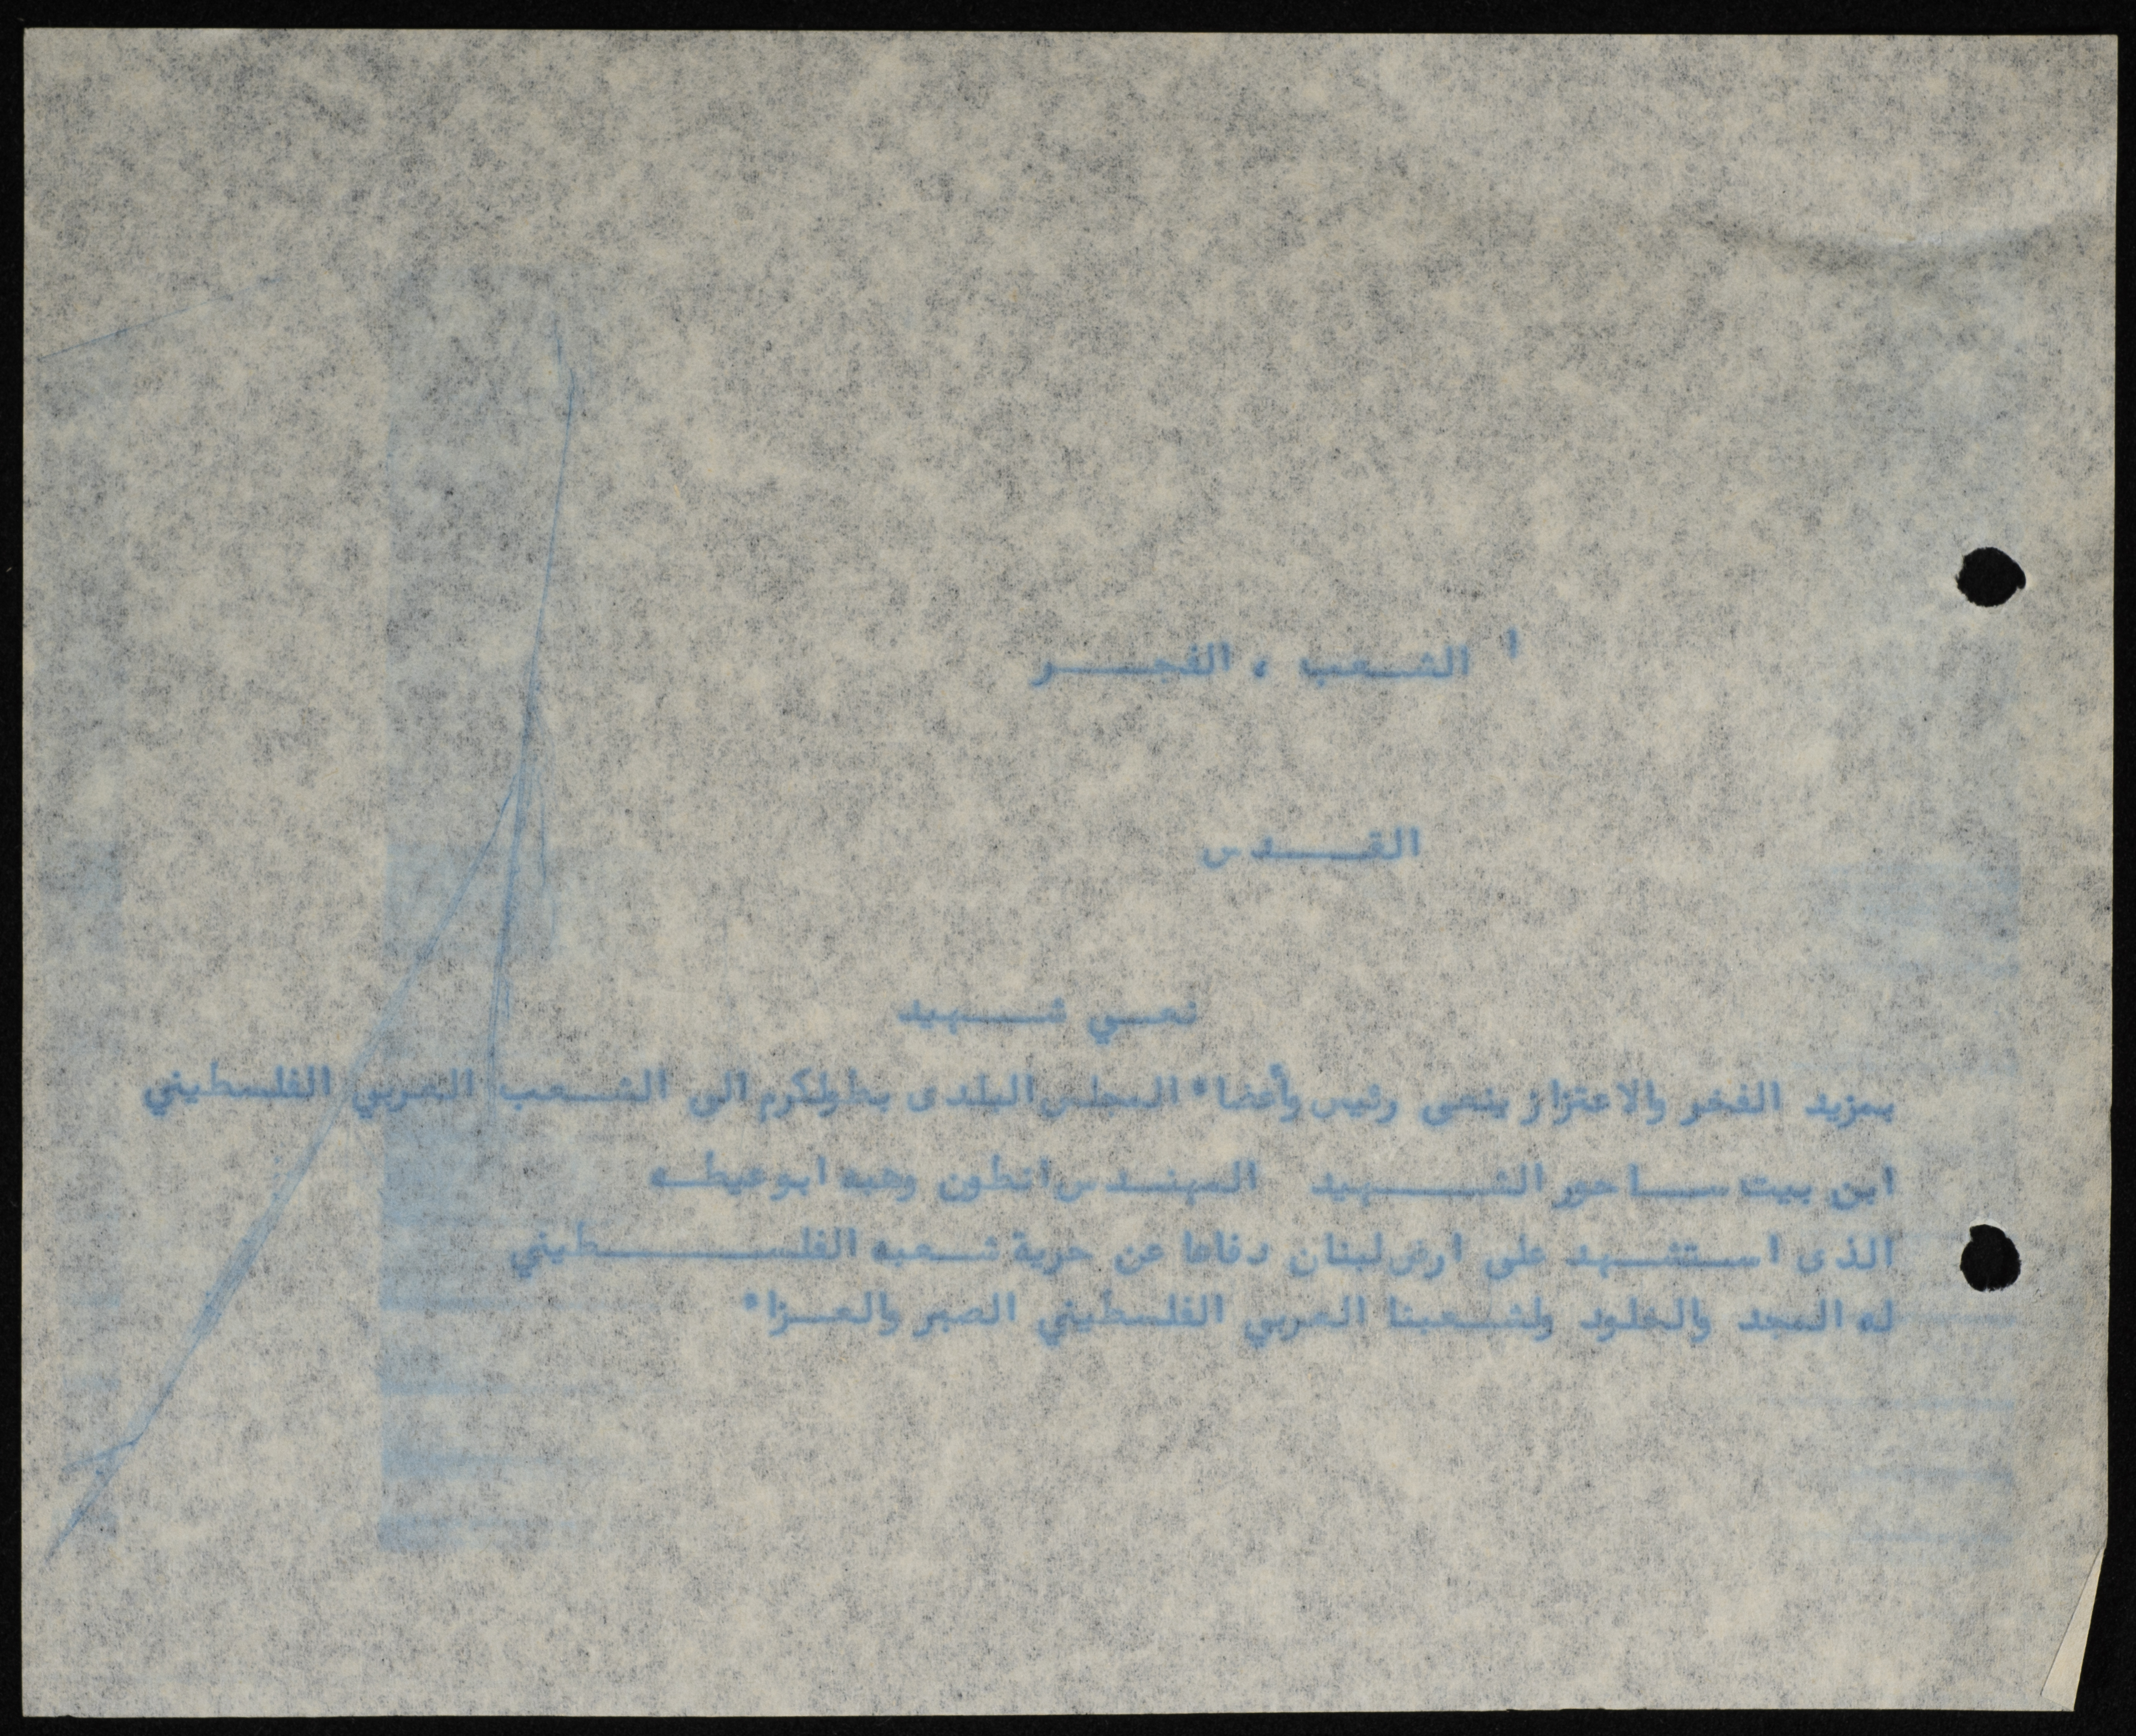 الشعب ، الفجر
القدس
نعي شهيد
بمزيد الفخر والاعتزاز ينعى رئيس وأعضاء المجلس البلدى بطولكرم الى الشعب العربي الفلسطيني
ابن بيت ساحور الشهيد المهندس انطون وهبه ابوعيطه
الذى استشهد على ارض لبنان دفاعا عن حرية شعبه الفلسطيني
له المجد والخلود ولشعبنا العربي الفلسطيني الصبر والعزاء